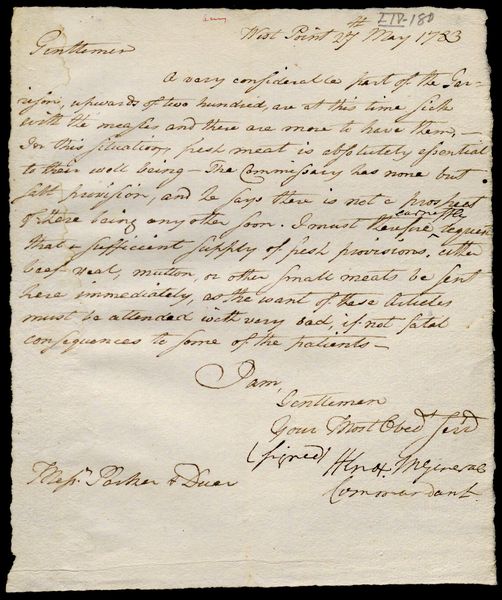 LIV-180
West Point 27th May 1783
Gentlemen
A very considerable part of the Gar-
rison, upwards of two hundred are at this time sick
with the measles and there are more to have them,—
In this situation, fresh meat is absolutely essential
to their well being — The Commissary has none but
salt provision, and he says there is not a prospect
of there being any other soon. I must therefore earnestly request
that a sufficient supply of fresh provisions, either
beef veal, mutton, or other small meats be sent
here immediately, as the want of these articles
must be attended with very bad, if not fatal
consequences to some of the patients —
I am,
Gentlemen
Your Most Obedt Servt
(signed) HKnox MGeneral
Commandant.
Messrs Parker & Duer